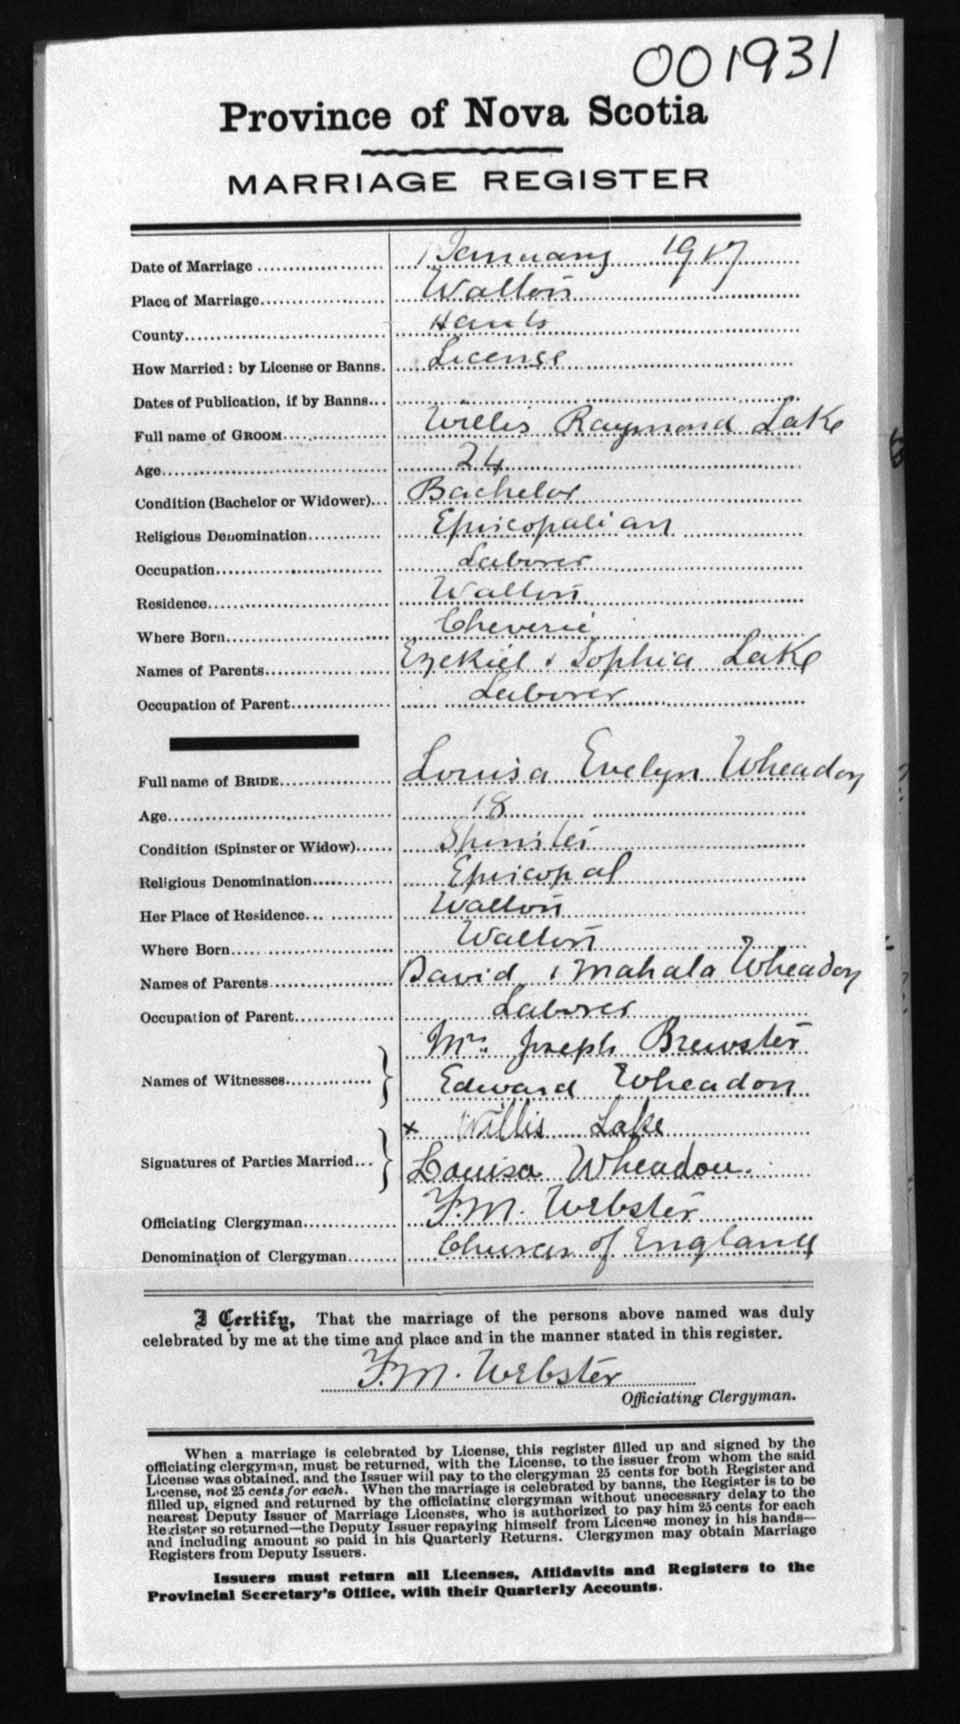 001931
Province of Nova Scotia
MARRIAGE REGISTER
Date of Marriage January 1917
Place of Marriage Walton
County Hants
How Married: by License or Banns. License
Dates of Publication, if by Banns
Full name of GROOM Willis Raymond Lake
Age 24
Condition (Bachelor or Widower) Bachelor
Religious Denomination Episcopalian
Occupation Laborer
Residence Walton
Where Born Cheverie
Names of Parents Ezekiel & Sophia Lake
Occupation of Parent Laborer
Full name of BRIDE Louisa Evelyn Wheadon
Age 18
Condition (Spinster or Widow) Spinster
Religious Denomination Episcopal
Her Place of Residence Walton
Where Born Walton
Names of Parents David & Mahala Wheadon
Occupation of Parent Laborer
Mrs. Joseph Brewster
Names of Witnesses
Edward Wheadon
x Willis Lake
Signatures of Parties Married
Louisa Wheadon.
Officiating Clergyman F.M. Webster
Denomination of Clergyman Church of England
I Certify, That the marriage of the persons above named was duly
celebrated by me at the time and place and in the manner stated in this register.
F.M. Webster
Officiating Clergyman.
When a marriage is celebrated by License, this register filled up and signed by the
officiating clergyman, must be returned, with the License, to the issuer from whom the said
License was obtained, and the Issuer will pay to the clergyman 25 cents for both Register and
License, not 25 cents for each. When the marriage is celebrated by banns, the Register is to be
filled up, signed and returned by the officiating clergyman without unnecessary delay to the
nearest Deputy Issuer of Marriage Licenses, who is authorized to pay him 25 cents for each
Register so returned—the Deputy Issuer repaying himself from License money in his hands—
and including amount so paid in his Quarterly Returns. Clergymen may obtain Marriage
Registers from Deputy Issuers.
Issuers must return all Licenses, Affidavits and Registers to the
Provincial Secretary's Office, with their Quarterly Accounts.